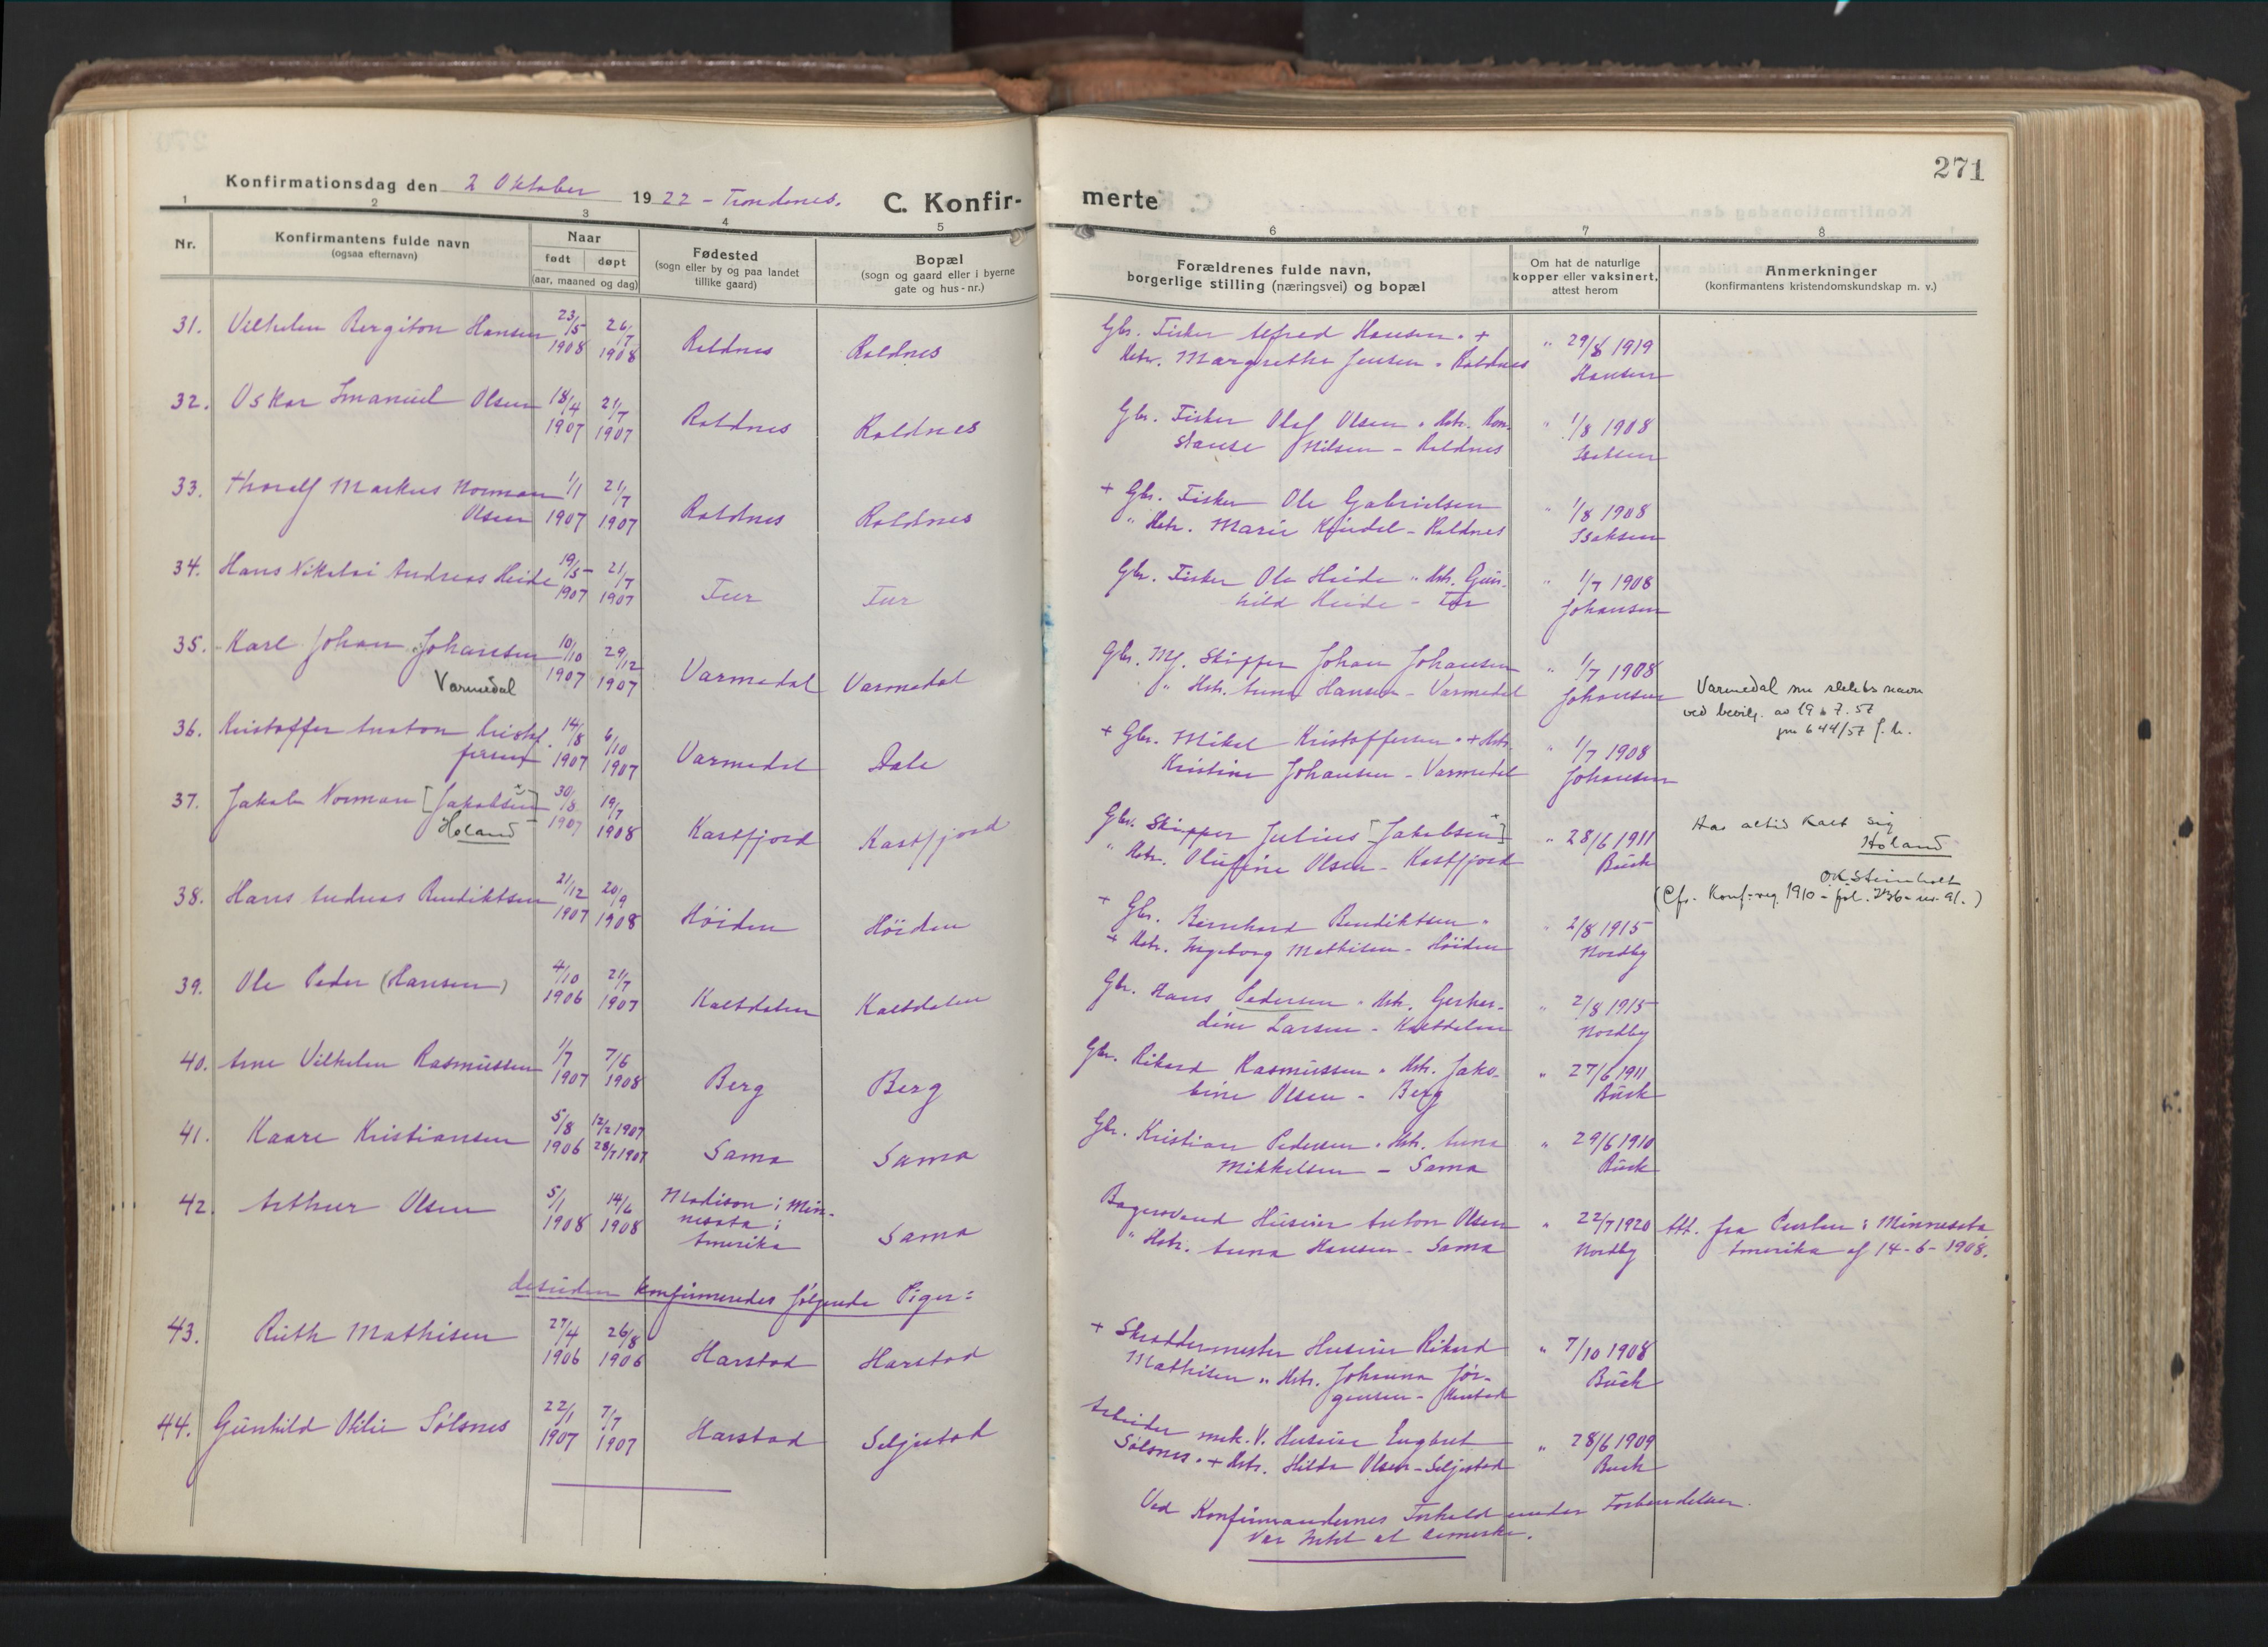 271
Konfirmationsdag den 2 Oktober 1922 - Trondenes.
C. Konfir-
merte
1 2 3 4 5 6 7 8
Nr.
Konfirmantens fulde navn
(ogsaa efternavn)
Naar
født døpt
(aar, maaned og dag)
Fødested
(sogn eller by og paa landet
tillike gaard)
Bopæl
(sogn og gaard eller i byerne
gate og hus-nr.)
Forældrenes fulde navn,
borgerlige stilling (næringsvei) og bopæl
Om hat de naturlige
kopper eller vaksinert,
attest herom
Anmerkninger
(konfirmantens kristendomskundskap m. v.)
31. Vilhelm Bergiton Hansen 23/5 1908 26/7 1908 Roldnes Roldnes
Gbr. Fisker Alfred Hansen. +
Hstr. Margrethe Jensen - Roldnes
" 29/8 1919
Hansen
32. Oskar Imanuel Olsen 18/4 1907 21/7 1907 Roldnes Roldnes
Gbr. Fisker Olaf Olsen " Hstr. Kon-
stanse Nilsen - Roldnes
" 1/8 1908
Isaksen
33. Thoralf Markus Norman 1/1 21/7
Olsen 1907 1907 Roldnes Roldnes
+ Gbr. Fisker Ole Gabrielsen
" Hstr. Marie - Roldnes
" 1/8 1908
Isaksen
34. Hans Nikolai Andreas Heide 19/5 1907 21/7 1907
Gbr. Fisker Ole Heide " Hstr. Gun-
hild Heide -
" 1/7 1908
Johansen
35. Karl Johan Johansen 10/10 1907 29/12 1907 Varmedal Varmedal
Varmedal
Gbr. Skipper Johan Johansen
" Hstr. Anna Hansen - Varmedal
" 1/7 1908
Johansen
Varmedal nu slektsnavn
ved bevilg. av 19 57
644/57
36. Kristoffer Anton Kristof- 14/8 6/10
fersen 1907 1907 Varmedal Dale
+ Gbr. Mikal Kristoffersen " + Hstr.
Kristine Johansen - Varmedal
" 1/7 1908
Johansen
37. Jakob Norman [Jakobsen*] 30/8 1907 19/7 1908 Kastfjord Kastfjord
Holand
Gbr. Skipper Julius [Jakobsen*]
" Hstr. Olufine Olsen - Kastfjord
" 28/6 1911
Buck
Har altid kalt sig
Holand
OK Steinholt
(Cfr. Konf.reg. 1910 - fol. 236 - nr. 91.)
38. Hans Andreas Bendiktsen 21/12 1907 20/9 1908 Høiden Høiden
+ Gbr. Bernhard Bendiktsen "
+ Hstr. Ingeborg Mathisen - Høiden
" 2/8 1915
Nordby
39. Ole Peder (Hansen) 4/10 1906 21/7 1907 Kaltdalen Kaltdalen
Gbr. Hans Pedersen " Hstr. Gerhar-
dine Larsen - Kaltdalen
" 2/8 1915
Nordby
40. Arne Vilhelm Rasmussen 1/7 1907 7/6 1908 Berg Berg
Gbr. Rikard Rasmussen " Hstr. Jako-
bine Olsen - Berg
" 27/6 1911
Buck
41. Kaare Kristiansen 5/8 1906 12/2 1907 28/7 1907 Sama Sama
Gbr. Kristian Pedersen " Hstr. Anna
Mikkelsen - Sama
" 29/6 1910
Buck
42. Arthur Olsen 5/1 1908 14/6 1908 Madison i Min-
nesota i
Amerika Sama
Husmor Anton Olsen
" Hstr. Anna Hansen - Sama
" 22/7 1920
Nordby
Att. fra i Minnesota
Amerika af 14-6-1908.
desuden konfirmeredes følgende Piger:
43. Ruth Mathisen 27/4 1906 26/8 1906 Harstad Harstad
+ Skræddermester Huseier Rikard
Mathisen " Hstr. Johanna Jør-
gensen - Harstad
" 7/10 1908
Buck
44. Gunhild Otilie Sølsnes 22/1 1907 7/7 1907 Harstad Seljestad
Arbeider mek. V. Huseier Engbret
Sølsnes. + Hstr. Hilda Olsen - Seljestad
" 28/6 1909
Buck
Ved Konfirmandernes Forhold under Forberedelsen
var Intet at bemerke.